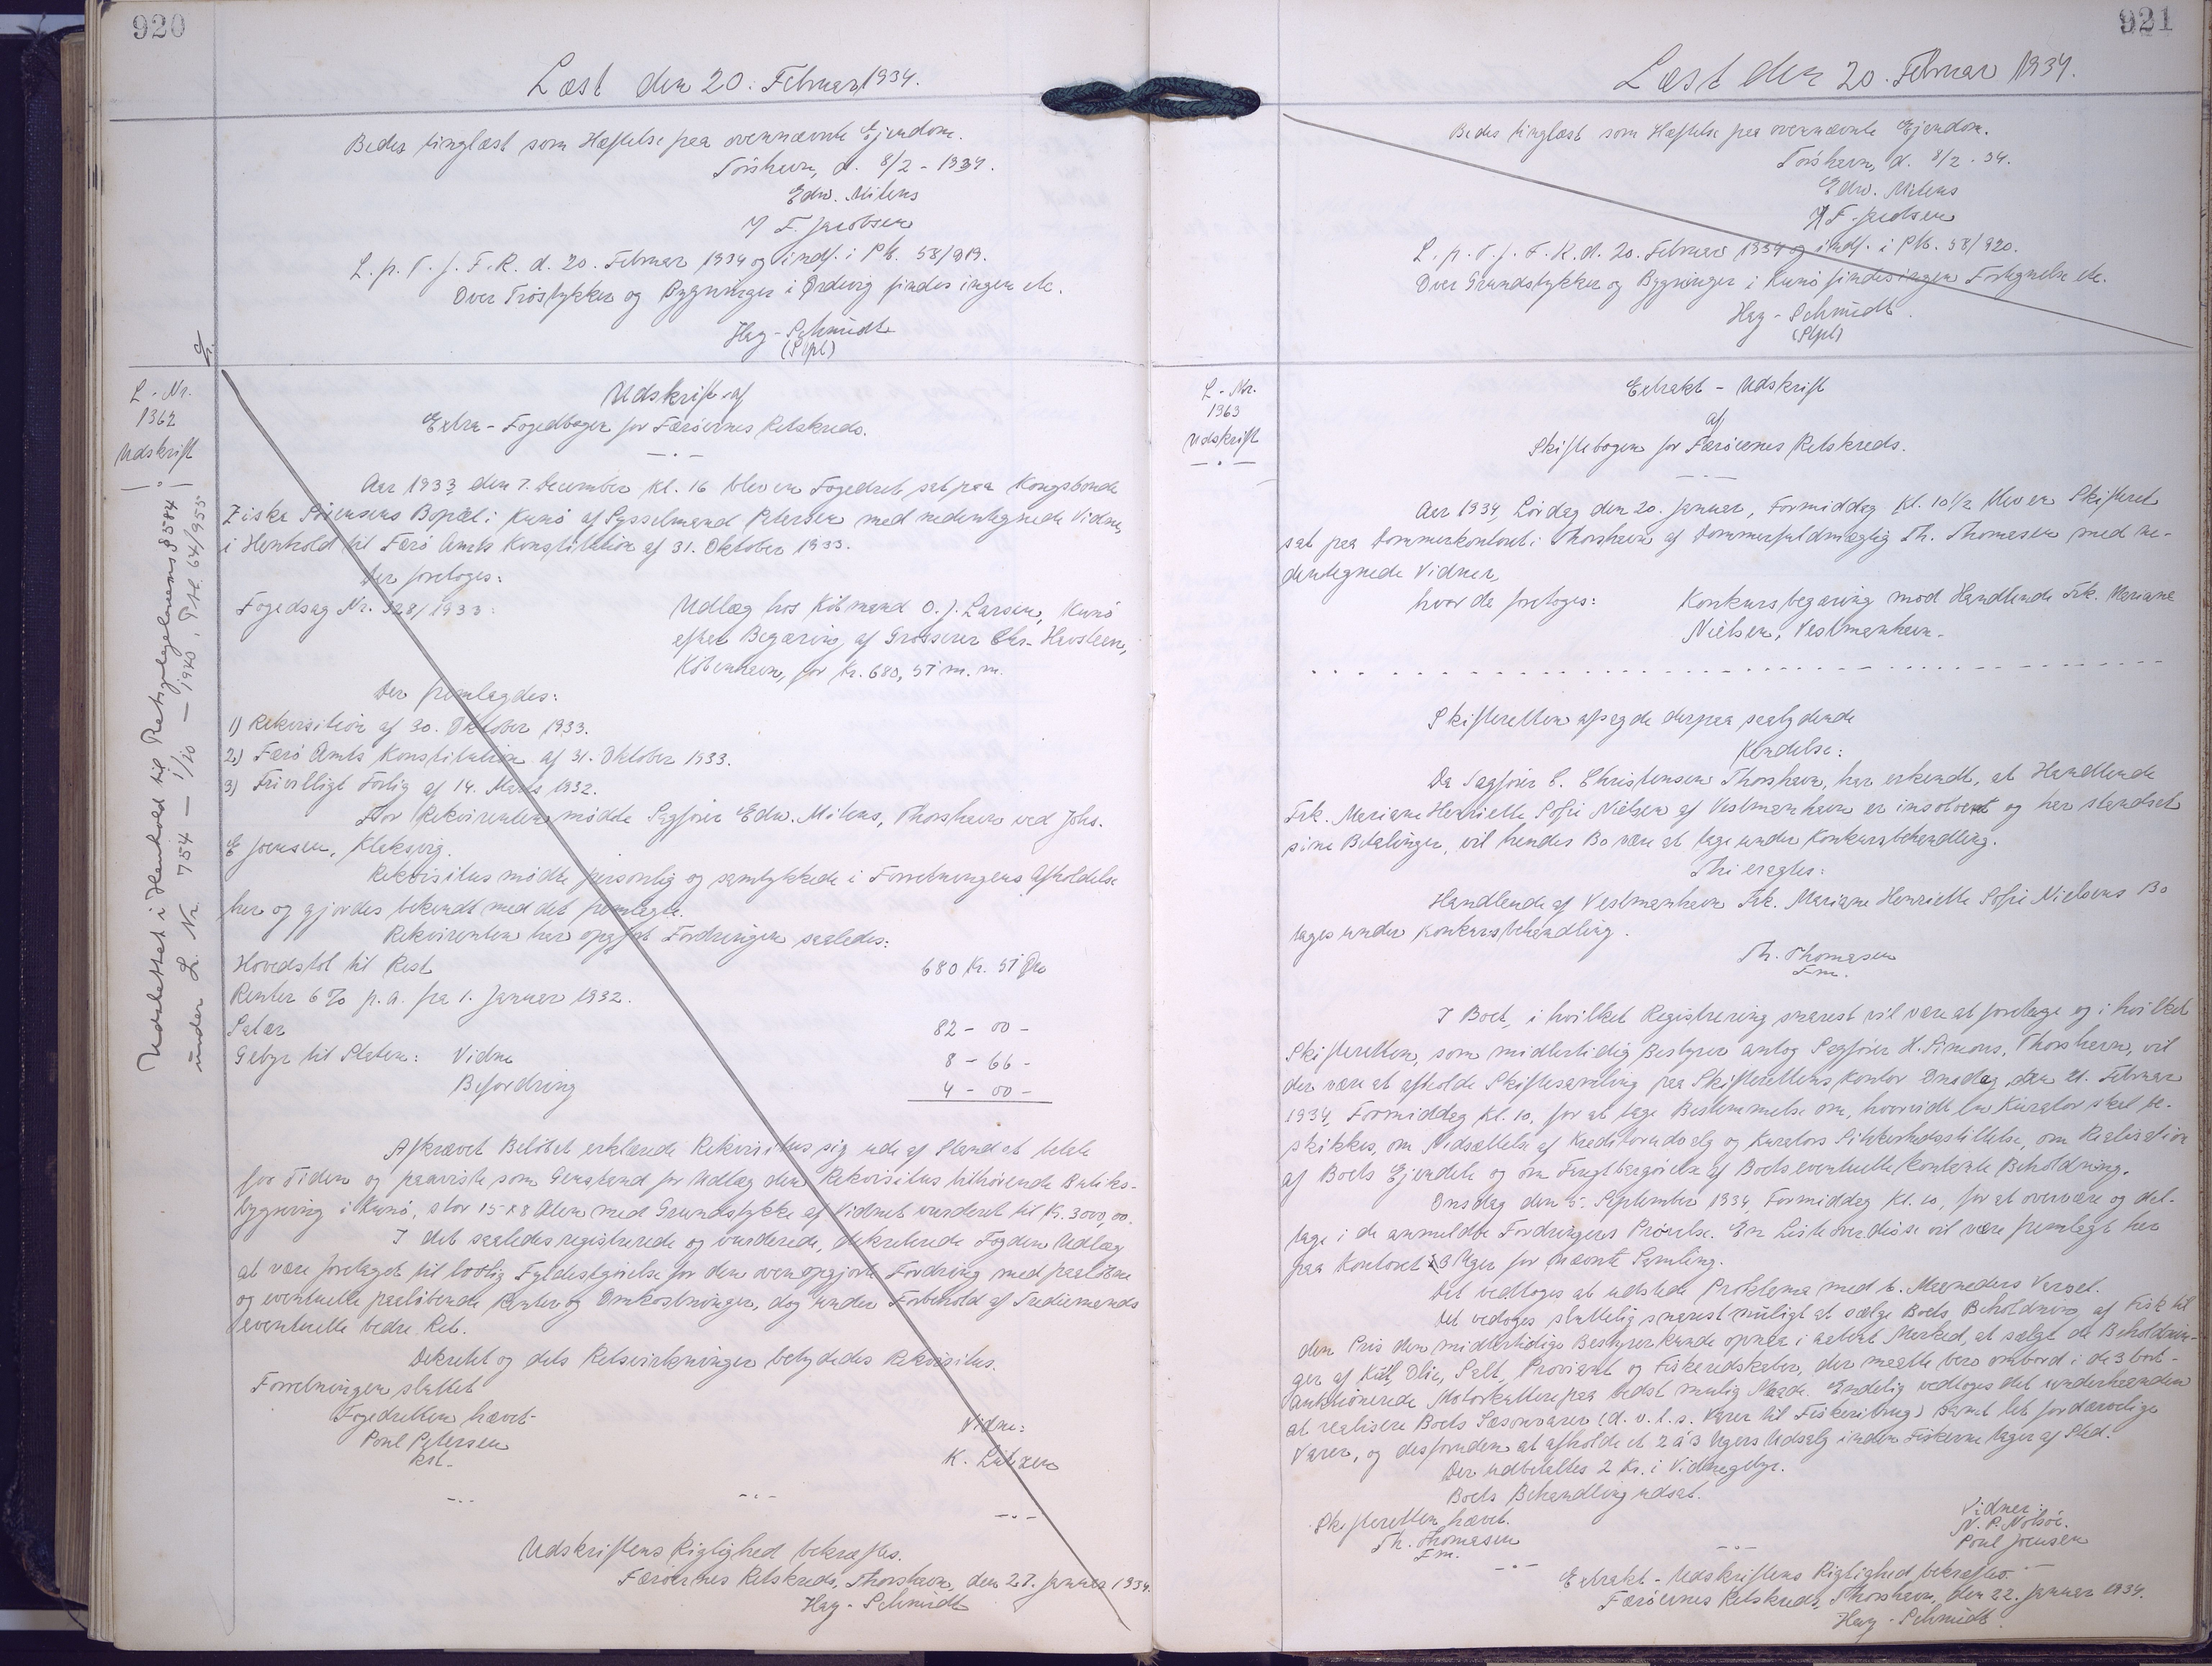 920
Læst den 20. Februar 1934.
Bedes tinglæst som Hæftelse paa ovennævnte Ejendom.
Tórshavn, d. 8/2 - 1934.
Edw. Mitens
/ F. Jacobsen
L. p. T. f. F. R. d. 20. Februar 1934 og indf. i Pb. 58/919.
Over Trøstykker og Bygninger i Ørdevig findes ingen etc.
Hay-Schmidt
(Stpl)
L.-Nr.
1362
Udskrift
Udslettet i Henhold til Retsplejelovens § 584
under L. Nr. 754 — 1/10 — 1940, Pb. 64/955
Udskrift af
Extra-Fogedbogen for Færøernes Retskreds.
Aar 1933 den 7. December Kl. 16 blev en Fogedret sat paa Kongsbonde
Ziska Sørensens Bopæl i Kunø af Sysselmand Petersen med nedentegnede Vidne,
i Henhold til Færø Amts Konstitution af 31. Oktober 1933.
Der foretoges:
Fogedsag Nr. 328/1933:
Udlæg hos Købmand O. J. Larsen, Kunø
efter Begæring af Grosserer Chr.
København, for Kr. 680,51 m. m.
Der fremlagdes:
1) Rekvisition af 30. Oktober 1933.
2) Færø Amts Konstitution af 31. Oktober 1933.
3) Frivilligt Forlig af 14. Marts 1932.
For Rekvirenten mødte Sagfører Edw. Mitens, Thorshavn ved Johs.
E Joensen, Klaksvig.
Rekvisitus mødte personlig og samtykkede i Forretningens Afholdelse
her og gjordes bekendt med det fremlagte.
Rekvirenten har opgjort Fordringen saaledes:
Hovedstol til Rest 680 Kr. 51 Øre
Renter 6% p. a. fra 1. Januar 1932.
Salær 82 - 00 -
Gebyr til Staten: Vidne 8 - 66 -
Befordring 4 - 00 -
Afkrævet Beløbet erklærede Rekvisitus sig ude af Stand at betale
for Tiden og paaviste som Genstand for Udlæg den Rekvisitus tilhørende Butiks-
bygning i Kunø, stor 15 x 8 Alen med Grundstykke af Vidnet vurderet til Kr. 3000,00.
I det saaledes registrerede og vurderede, dekreterede Fogden Udlæg
at være foretaget til lovlig Fyldestgørelse for den ovenopgjorte Fordring med paaløbne
og eventuelle paaløbende Renter og Omkostninger, dog under Forbehold af Trediemands
eventuelle bedre Ret.
Dekretet og dets Retsvirkninger betydedes Rekvisitus.
Forretningen sluttet
Fogedretten hævet.
Poul Petersen
kst.
Vidne:
K. Lützen
Udskriftens Rigtighed bekræftes.
Færøernes Retskreds, Thorshavn, den 27. Januar 1934.
Hay-Schmidt
921
Læst den 20. Februar 1934.
Bedes tinglæst som Hæftelse paa ovennævnte Ejendom.
Tórshavn, d. 8/2. 34.
Edw. Mitens
/ F. Jacobsen
L. p. T. f. F. R. d. 20. Februar 1934 og indf. i Pb. 58/920.
Over Grundstykker og Bygninger i Kunø findes ingen Fortegnelse etc.
Hay-Schmidt.
(Stpl)
L.-Nr.
1363
Udskrift
Extrakt-Udskrift
af
Skiftebogen for Færøernes Retskreds.
Aar 1934, Lördag den 20. Januar, Formiddag Kl. 10½ blev en Skifteret
sat paa Dommerkontoret i Thorshavn af Dommerfuldmægtig Th. Thomasen med ne-
dentegnede Vidner,
hvor da foretoges:
Konkursbegæring mod Handlende Frk. Mariane
Nielsen, Vestmanhavn.
Skifteretten afsagde derpaa saalydende
Kendelse:
Da Sagfører C. Christensen Thorshavn, har erkendt, at Handlende
Frk. Mariane Henriette Sofie Nielsen af Vestmanhavn er insolvent og har standset
sine Betalinger, vil hendes Bo være at tage under Konkursbehandling.
Thi eragtes:
Handlende af Vestmanhavn Frk. Mariane Henriette Sofie Nielsens Bo
tages under Konkursbehandling.
Th. Thomasen
Fm.
I Boet, i hvilket Registrering snarest vil være at foretage og i hvilket
Skifteretten, som midlertidig Bestyrer antog Sagfører H. Simons, Thorshavn, vil
der være at afholde Skiftesamling paa Skifterettens Kontor Onsdag den 21. Februar
1934, Formiddag Kl. 10, for at tage Bestemmelse om, hvorvidt en Kurator skal be-
skikkes, om Nedsættelse af Kreditorudvalg og Kurators Sikkerhedsstillelse, om Realisation
af Boets Ejendele og om Frugtbargørelse af Boets eventuelle Kontante Beholdning.
Onsdag den 5. September 1934, Formiddag Kl. 10, for at overvære og del-
tage i de anmeldte Fordringers Prøvelse. En Liste over disse vil være fremlagt her
paa Kontoret 3 Uger for nævnte Samling.
Det vedtoges at udstede Proklama med 6. Maaneders Varsel.
Det vedoges sluttelig snarest muligt at sælge Boets Beholdning af Fisk til
den Pris den midlertidige Bestyrer kunde opnaa i aabent Marked, at sælge de Beholdnin-
ger af Kul, Olie, Salt, Proviant og Fiskeredskaber, der maatte bero ombord i de 3 bort-
auktionerede Motorkuttere paa bedst mulig Maade. Endelig vedtoges det underhaanden
at realisere Boets Sæsonvarer (d. v. s. Varer til Fiskeribrug) samt let fordærvelige
Varer, og desforuden at afholde et 2 á 3 Ugers Udsalg inden Fiskerne tager af Sted.
Der udbetaltes 2 Kr. i Vidnegebyr.
Boets Behandling udsat.
Skifteretten hævet.
Th. Thomasen
Fm.
Vidner:
N. P. Nolsøe.
Poul Joensen
Extrakt-Udskriftens Rigtighed bekræftes.
Færøernes Retskreds, Thorshavn, den 22. Januar 1934.
Hay-Schmidt.